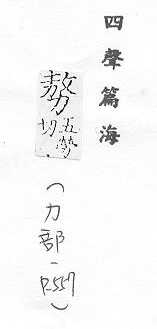 四聲篇海
𠢕
五勞
切
(力部-P.557)